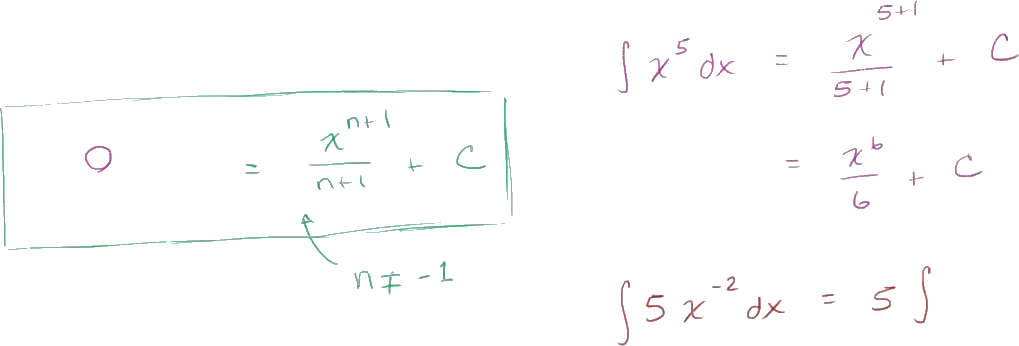 O = x^{n+1}/(n+1) + C
n ≠ -1
∫ x^5 dx = x^{5+1}/(5+1) + C
= x^6/6 + C
∫ 5 x^{-2} dx = 5 ∫